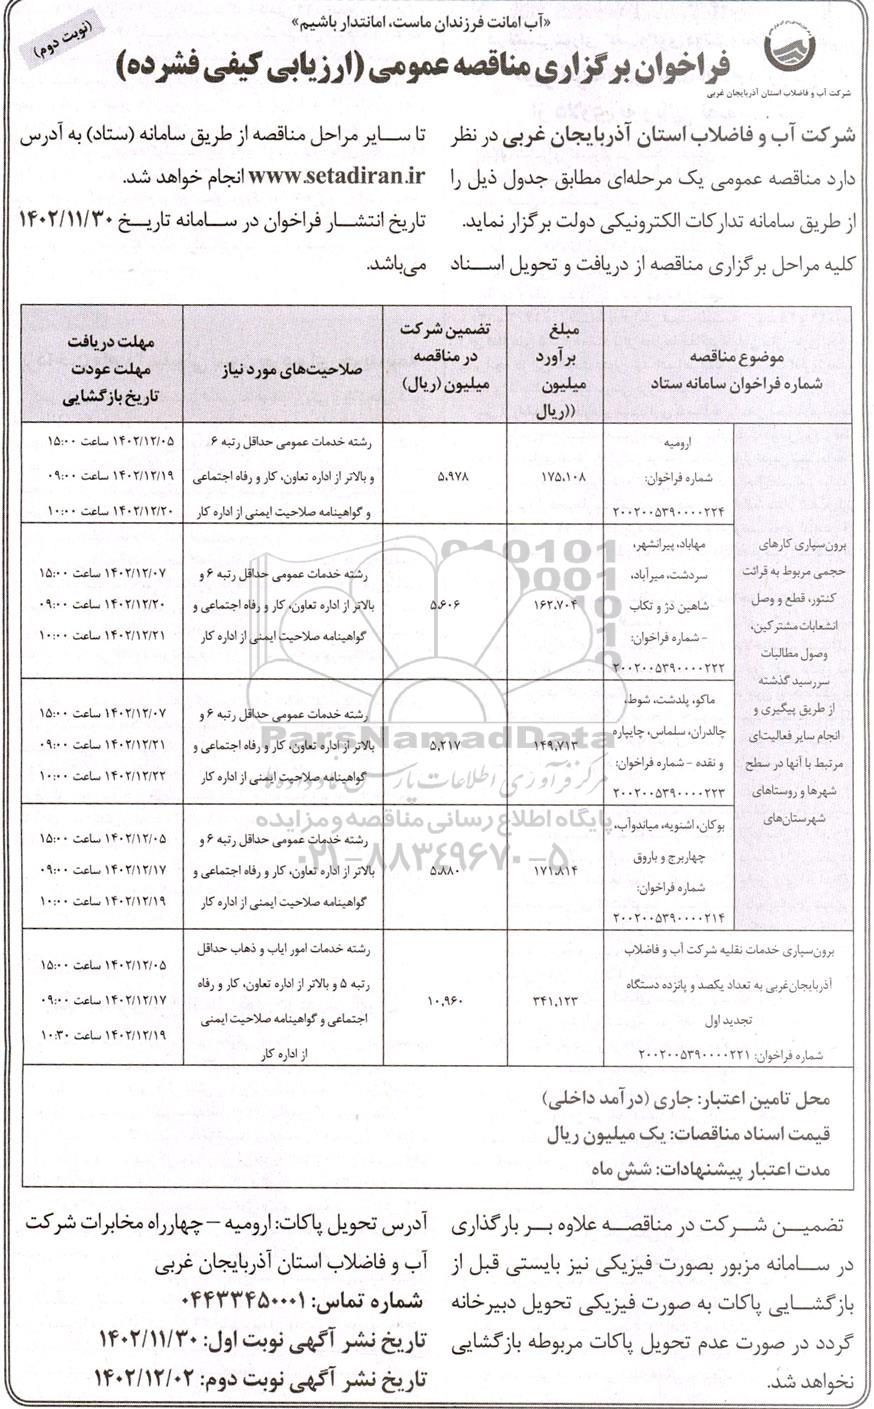 «آب امانت فرزندان ماست، امانتدار باشیم»
(نوبت دوم)
فراخوان برگزاری مناقصه عمومی (ارزیابی کیفی فشرده)
شرکت آب و فاضلاب استان آذربایجان غربی
شرکت آب و فاضلاب استان آذربایجان غربی در نظر
دارد مناقصه عمومی یک مرحله‌ای مطابق جدول ذیل را
از طریق سامانه تدارکات الکترونیکی دولت برگزار نماید.
کلیه مراحل برگزاری مناقصه از دریافت و تحویل اسناد
تا سایر مراحل مناقصه از طریق سامانه (ستاد) به آدرس
www.setadiran.ir انجام خواهد شد.
تاریخ انتشار فراخوان در سامانه تاریخ ۱۴۰۲/۱۱/۳۰
می‌باشد.
موضوع مناقصه
شماره فراخوان سامانه ستاد
مبلغ
برآورد
میلیون
((ریال
تضمین شرکت
در مناقصه
میلیون (ریال)
صلاحیت‌های مورد نیاز
مهلت دریافت
مهلت عودت
تاریخ بازگشایی
برون‌سپاری کارهای
حجمی مربوط به قرائت
کنتور، قطع و وصل
انشعابات مشترکین،
وصول مطالبات
سررسید گذشته
از طریق پیگیری و
انجام سایر فعالیت‌ای
مرتبط با آنها در سطح
شهرها و روستاهای
شهرستان‌های
ارومیه
شماره فراخوان:
۲۰۰۲۰۰۵۳۹۰۰۰۰۲۲۴
۱۷۵،۱۰۸
۵،۹۷۸
رشته خدمات عمومی حداقل رتبه ۶
و بالاتر از اداره تعاون، کار و رفاه اجتماعی
و گواهینامه صلاحیت ایمنی از اداره کار
۱۴۰۲/۱۲/۰۵ ساعت ۱۵:۰۰
۱۴۰۲/۱۲/۱۹ ساعت ۰۹:۰۰
۱۴۰۲/۱۲/۲۰ ساعت ۱۰:۰۰
مهاباد، پیرانشهر،
سردشت، میرآباد،
شاهین دژ و تکاب
- شماره فراخوان:
۲۰۰۲۰۰۵۳۹۰۰۰۰۲۲۲
۱۶۲،۷۰۴
۵،۶۰۶
رشته خدمات عمومی حداقل رتبه ۶ و
بالاتر از اداره تعاون، کار و رفاه اجتماعی و
گواهینامه صلاحیت ایمنی از اداره کار
۱۴۰۲/۱۲/۰۷ ساعت ۱۵:۰۰
۱۴۰۲/۱۲/۲۰ ساعت ۰۹:۰۰
۱۴۰۲/۱۲/۲۱ ساعت ۱۰:۰۰
ماکو، پلدشت، شوط،
چالدران، سلماس، چایپاره
و نقده - شماره فراخوان:
۲۰۰۲۰۰۵۳۹۰۰۰۰۲۲۳
۱۴۹،۷۱۳
۵،۲۱۷
رشته خدمات عمومی حداقل رتبه ۶ و
بالاتر از اداره تعاون، کار و رفاه اجتماعی و
گواهینامه صلاحیت ایمنی از اداره کار
۱۴۰۲/۱۲/۰۷ ساعت ۱۵:۰۰
۱۴۰۲/۱۲/۲۱ ساعت ۰۹:۰۰
۱۴۰۲/۱۲/۲۲ ساعت ۱۰:۰۰
بوکان، اشنویه، میاندوآب،
چهاربرج و باروق
شماره فراخوان:
۲۰۰۲۰۰۵۳۹۰۰۰۰۲۱۴
۱۷۱،۸۱۴
۵،۸۸۰
رشته خدمات عمومی حداقل رتبه ۶ و
بالاتر از اداره تعاون، کار و رفاه اجتماعی و
گواهینامه صلاحیت ایمنی از اداره کار
۱۴۰۲/۱۲/۰۵ ساعت ۱۵:۰۰
۱۴۰۲/۱۲/۱۷ ساعت ۰۹:۰۰
۱۴۰۲/۱۲/۱۹ ساعت ۱۰:۰۰
برون‌سپاری خدمات نقلیه شرکت آب و فاضلاب
آذربایجان‌غربی به تعداد یکصد و پانزده دستگاه
تجدید اول
شماره فراخوان: ۲۰۰۲۰۰۵۳۹۰۰۰۰۲۲۱
۳۴۱،۱۲۳
۱۰،۹۶۰
رشته خدمات امور ایاب و ذهاب حداقل
رتبه ۵ و بالاتر از اداره تعاون، کار و رفاه
اجتماعی و گواهینامه صلاحیت ایمنی
از اداره کار
۱۴۰۲/۱۲/۰۵ ساعت ۱۵:۰۰
۱۴۰۲/۱۲/۱۷ ساعت ۰۹:۰۰
۱۴۰۲/۱۲/۱۹ ساعت ۱۰:۳۰
ParsNamadData
مرکز فرآوری اطلاعات پارس نماد داده ها
پایگاه اطلاع رسانی مناقصه و مزایده
۰۲۱-۸۸۳۴۹۶۷۰-۵
محل تامین اعتبار: جاری (درآمد داخلی)
قیمت اسناد مناقصات: یک میلیون ریال
مدت اعتبار پیشنهادات: شش ماه
تضمین شرکت در مناقصه علاوه بر بارگذاری
در سامانه مزبور بصورت فیزیکی نیز بایستی قبل از
بازگشایی پاکات به صورت فیزیکی تحویل دبیرخانه
گردد در صورت عدم تحویل پاکات مربوطه بازگشایی
نخواهد شد.
آدرس تحویل پاکات: ارومیه – چهارراه مخابرات شرکت
آب و فاضلاب استان آذربایجان غربی
شماره تماس: ۰۴۴۳۳۴۵۰۰۰۱
تاریخ نشر آگهی نوبت اول: ۱۴۰۲/۱۱/۳۰
تاریخ نشر آگهی نوبت دوم: ۱۴۰۲/۱۲/۰۲